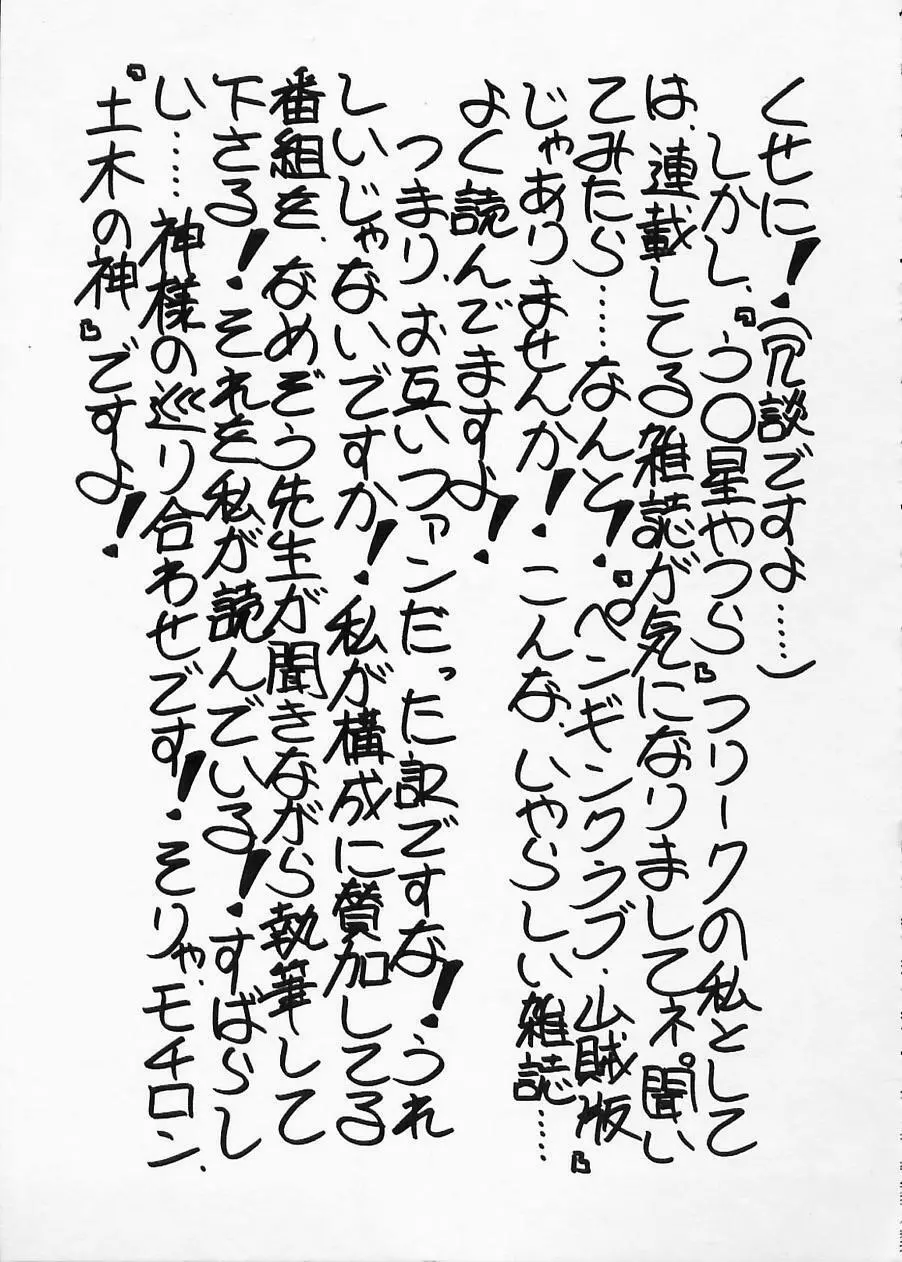 くせに！（冗談ですよ……）
しかし、『う〇星やつら』フリークの私として
は、連載してる雑誌が気になりましてネ。聞い
てみたら……なんと！『ペンギンクラブ、山賊版』
じゃありませんか！こんな、いやらしい雑誌……
よく読んでますよ！
つまり、お互いファンだった訳ですな！うれ
しいじゃないですか！私が構成に賛加してる
番組を、なめぞう先生が聞きながら執筆して
下さる！それを私が読んでいる！すばらし
い……神様の巡り合わせです！そりゃモチロン、
『土木の神』ですよ！